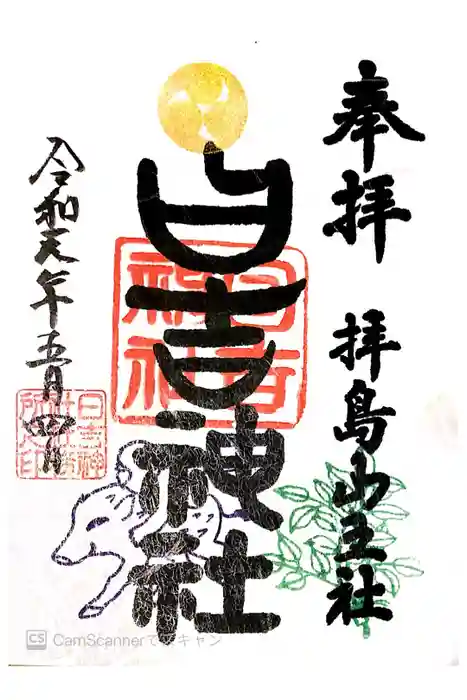 奉拝 拝島山王社
日吉神社
日吉神社
令和元年五月四日
日吉神
社社務
所之印
CS CamScannerでスキャン